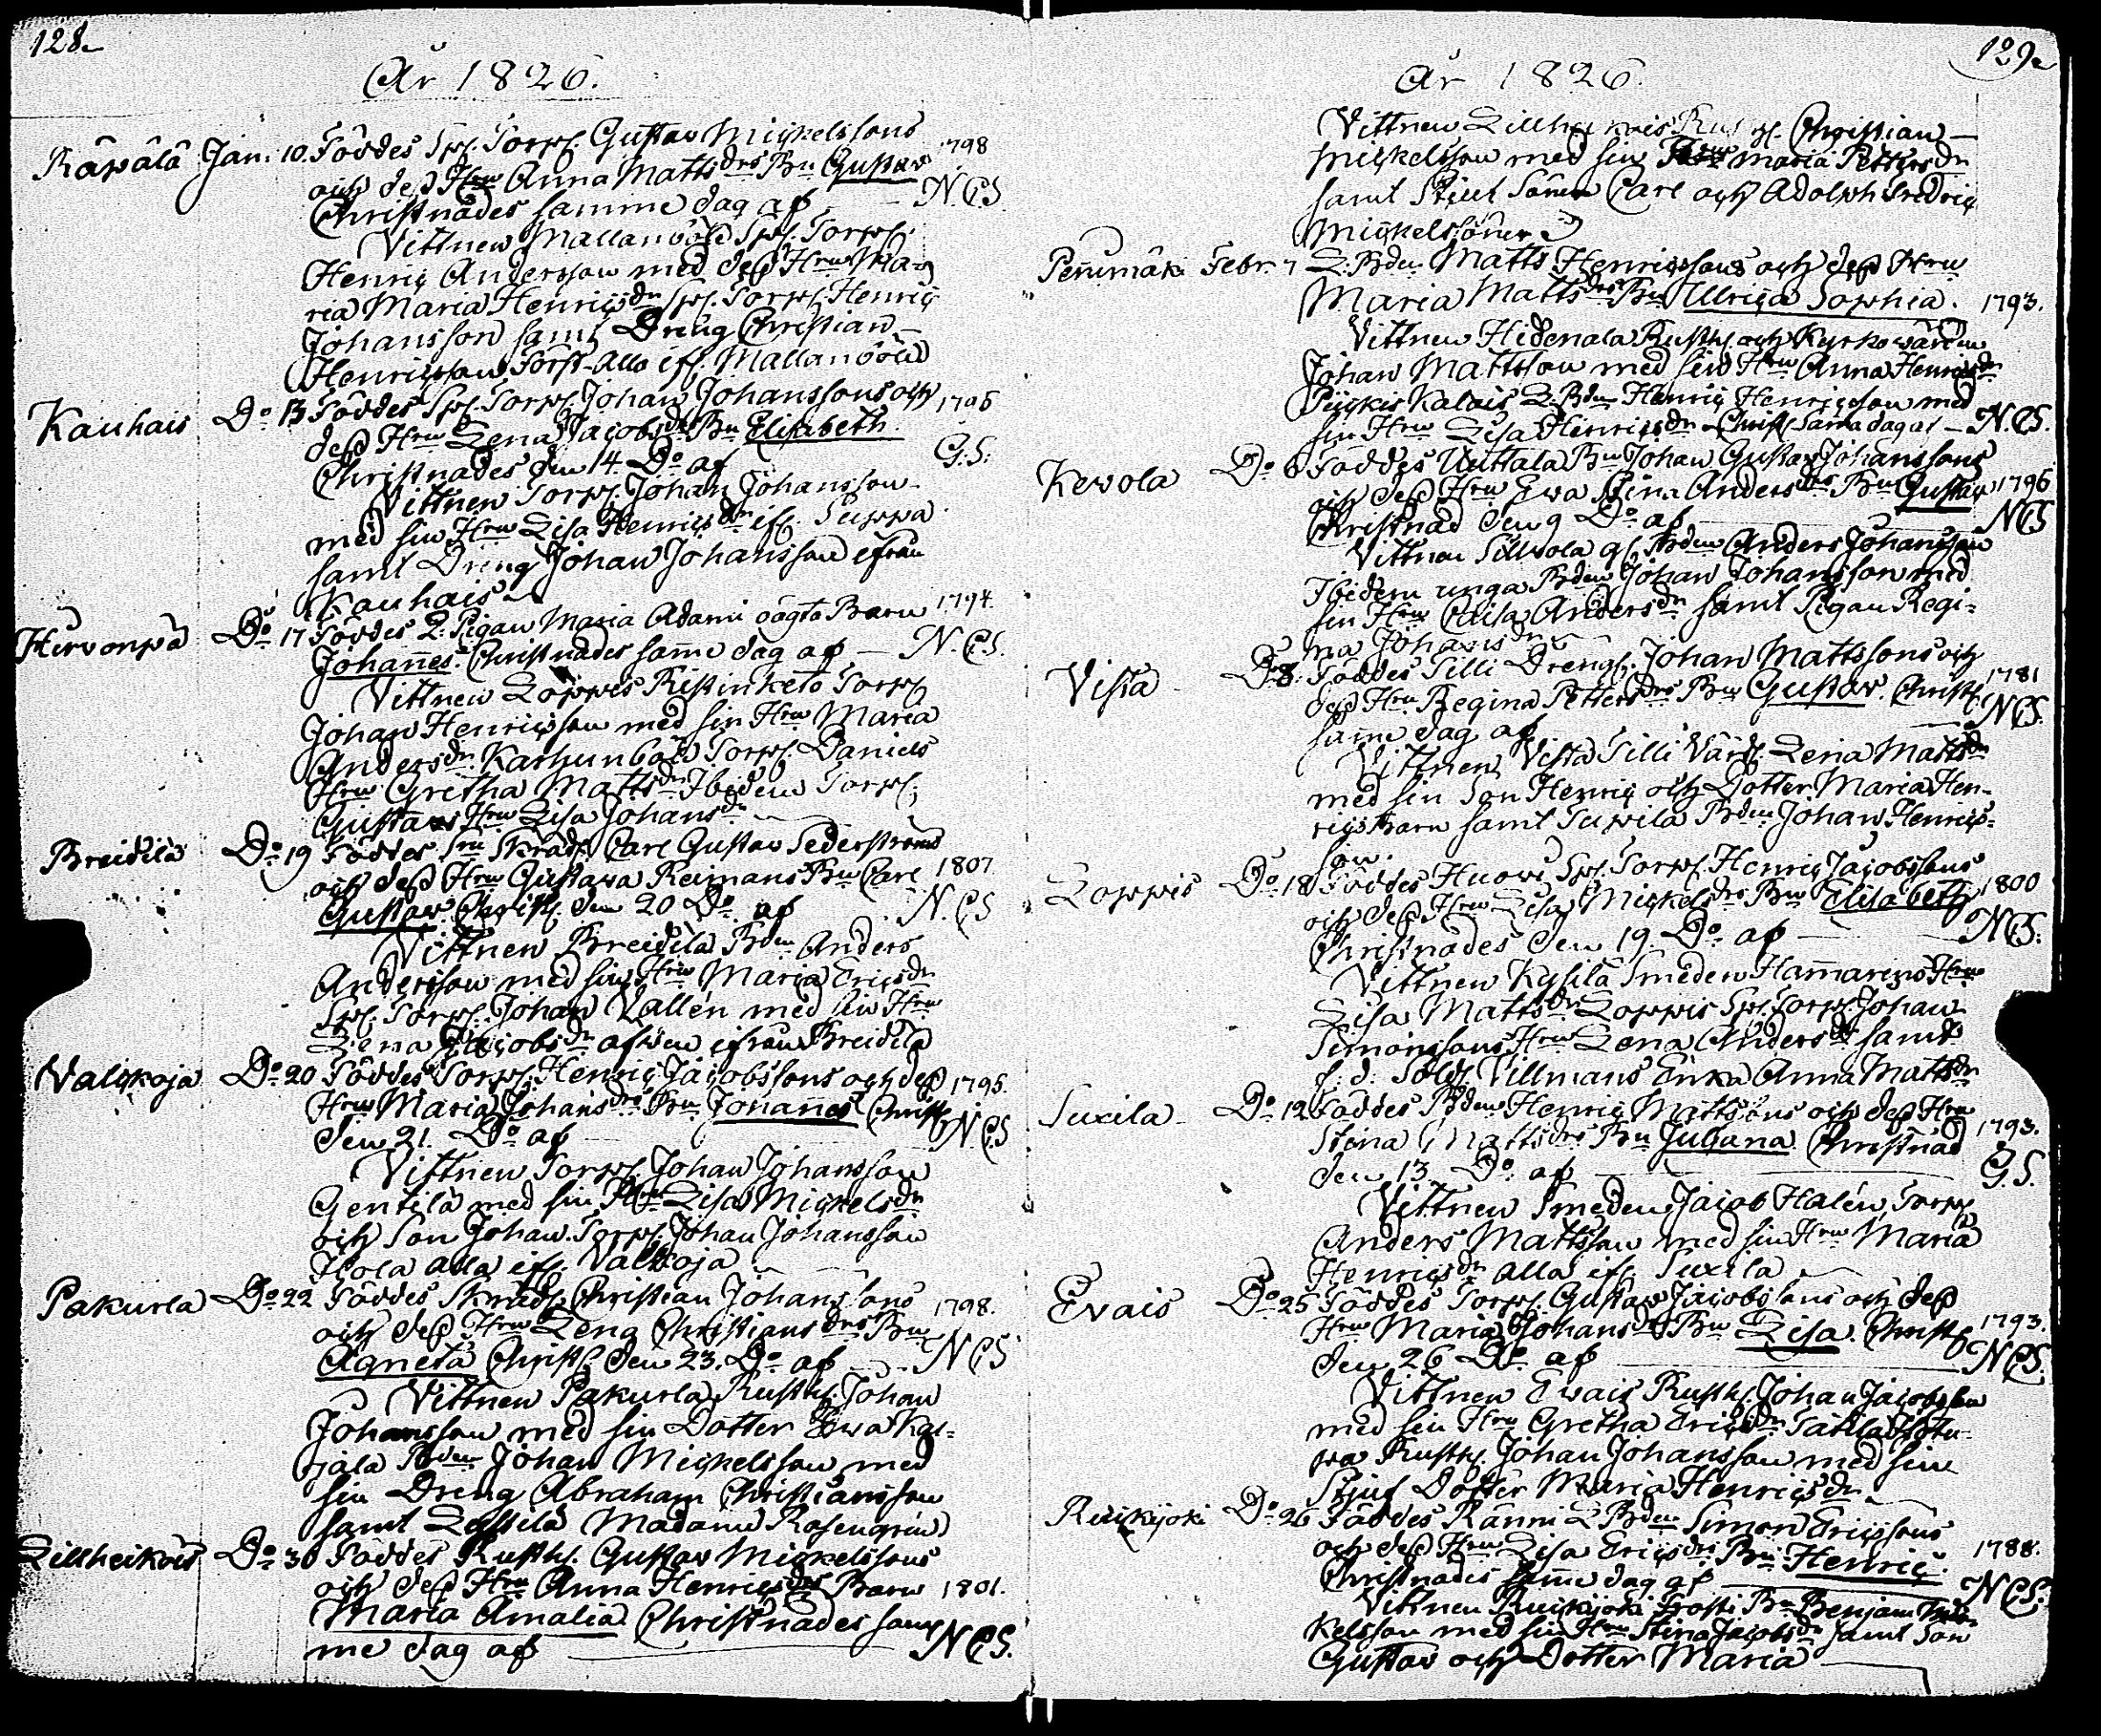 128.
År 1826.
Räpälä Jan: 10. Föddes Spl. Torpl. Gustav Mickelssons
och dess Hru Anna Mattsdrs Bn Gustav 1798
Christnades samme dag af — N.C.S.
Vittnen Mallanböle Spl. Torpl.
Henric Andersson med dess Hru Ma-
ria Maria Henricsdr Spl. Torpl. Henric
Johansson samt Dreng Christian
Henricsson Torst. alla ifr. Mallanböle
Kauhais Do 13 Föddes Spl. Torpl. Johan Johanssons och 1795
dess Hru Lena Jacobsdrs Bn Elisabeth.
Christnades den 14 Do af G.S.
Vittnen Torpl. Johan Johansson
med sin Hru Lisa Henricsdr ifr. Suppa
samt Dreng Johan Johansson ifrån
Kauhais
Hirvonpä Do 17 Föddes L. Pigan Maria Adami oägta Barn 1794.
Johannes. Christnades same dag af — N.C.S.
Vittnen Loppis Ristinketo Torpl
Johan Henricsson med sin Hru Maria
Andersdr Karhunböle Torpl. Daniels
Hru Gretha Mattsdr Ibidem Torpl.
Gustavs Hru Lisa Johansdr
Breidilä Do 19 Föddes Sn Skrädd. Carl Gustav Sederströms
och dess Hru Gustava Reimans Bn Carl 1807.
Gustav. Christn. den 20 Do af N.C.S
Vittnen Breidilä Bden Anders
Andersson med sin Hru Maria Ericsdr
Spl. Torpl. Johan Vallén med sin Hru
Lena Jacobsdr afven ifrån Breidilä
Valckoja Do 20 Föddes Torpl. Henric Jacobssons och dess 1795.
Hru Maria Johansdrs Bn Johannes Christn
den 21 Do af N.C.S
Vittnen Torpl. Johan Johansson
Gentilä med sin Hru Lisa Mickelsdr
och Son Johan. Torpl. Johan Johansson
Isola alla ifr. Valkoja
Pakurla Do 22 Föddes Skrädd. Christian Johanssons 1798.
och dess Hru Lena Christiansdrs Bn
Agneta Christn. den 23. Do af N.C.S
Vittnen Pakurla Rusth. Johan
Johansson med sin Dotter Ewa Kar-
jala Bden Johan Mickelsson med
sin Dreng Abraham Christiansson
samt Lassila Madame Rosengrén
Lillheikois Do 30 Föddes Rusth. Gustav Mickelssons
och dess Hru Anna Henricsdrs Barn 1801.
Maria Amalia Christnades sam-
me dag af — N.C.S.
129.
År 1826.
Vittnen Lillheikois Rusth. Christian
Mickelsson med sin Hru Maria Pettersdr
samt Stjuf Söner Carl och Adolph Fredric
Mickelssöner
Penimäki Febr. 7 L. Bden Matts Henricssons och dess Hru
Maria Mattsdrs Bn Ulrica Sophia. 1793.
Vittnen Hidenala Rusth. och Kyrkovärden
Johan Mattsson med sin Hru Anna Henricsdr
Pyckis Kalais L. Bden Henric Henricsson med
sin Hru Lisa Henricsdr Christn. sama dag af — N.C.S.
Kevola Do 8 Föddes Uuttala Bn Johan Gustav Johanssons
och dess Hru Ewa Stina Andersdrs Bn Gustav 1796
Christnad den 9 Do af N.C.S
Vittnen Sillvola gl. Bden Anders Johansson
Ibidem unga Bden Johan Johansson med
sin Hru Caisa Andersdr samt Pigan Regi-
na Johansdr
Vista Do 8. Föddes Silli Drengs. Johan Mattssons och
dess Hru Regina Pettersdrs Bn Gustav. Christn. 1781
same dag af N.C.S.
Vittnen Vista Silli Värd. Lena Mattsdr
med sin Son Henric och Dotter Maria Hen-
rics Barn samt Supila Bden Johan Henrics-
son.
Loppis Do 18 Föddes Huovi Spl. Torpl. Henric Jacobssons
och dess Hru Lisa Mickelsdrs Bn Elisabeth 1800
Christnades den 19. Do af — N.C.S.
Vittnen Kysilä Smeden Hammarens Hru
Lisa Mattsdr Loppis Spl. Torpl. Johan
Simonssons Hru Lena Andersdr samt
f. d. Sold. Villmans Enka Anna Mattsdr
Suxila Do 12 Föddes Bden Henric Mattssons och dess Hru
Stina Mattsdrs Bn Juliana Christnad 1793.
den 13. Do af G.S.
Vittnen Smeden Jacob Halén, Torpl
Anders Mattsson med sin Hru Maria
Henricsdr alla ifr. Suxila
Evais Do 25 Föddes Torpl. Gustav Jacobssons och dess
Hru Maria Johansdrs Bn Lisa. Christn 1793.
den 26 Do af N.C.S.
Vittnen Evais Rusth. Johan Jacobsson
med sin Hru Gretha Ericsdr
Rusth. Johan Johansson med sin
Stjuf Dotter Maria Henricsdr
Ruikijoki Do 26 Föddes Ranni L Bden Simon Ericssons
och dess Hru Lisa Ericsdrs Bn Henric. 1788.
Christnades same dag af N.C.S.
Vittnen Ruikijoki Prosti Bn Benjam Mic-
kelsson med sin Hru Stina Jacobsdr samt Son
Gustav och Dotter Maria